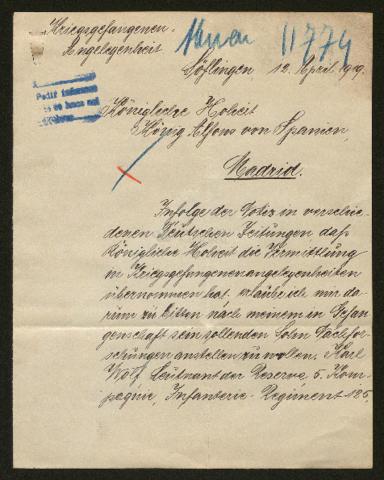 Kriegsgefangenen-
Angelegenheit
11774
Söflingen 12. April 1919.
Pedir informes
Königliche Hoheit
König Alfons von Spanien,
Madrid.
Infolge der Notiz in verschie-
denen Deutschen Zeitungen daß
Königliche Hoheit die Vermittlung
in Kriegsgefangenenangelegenheiten
übernommen hat, erlaube ich mir da
rum zu bitten nach meinem in Gefan
genschaft sein sollenden Sohn Nachfor-
schungen anstellen zu wollen. Karl
Wolf, Leutnant der Reserve 5. Kom-
pagnie, Infanterie-Regiment 125.